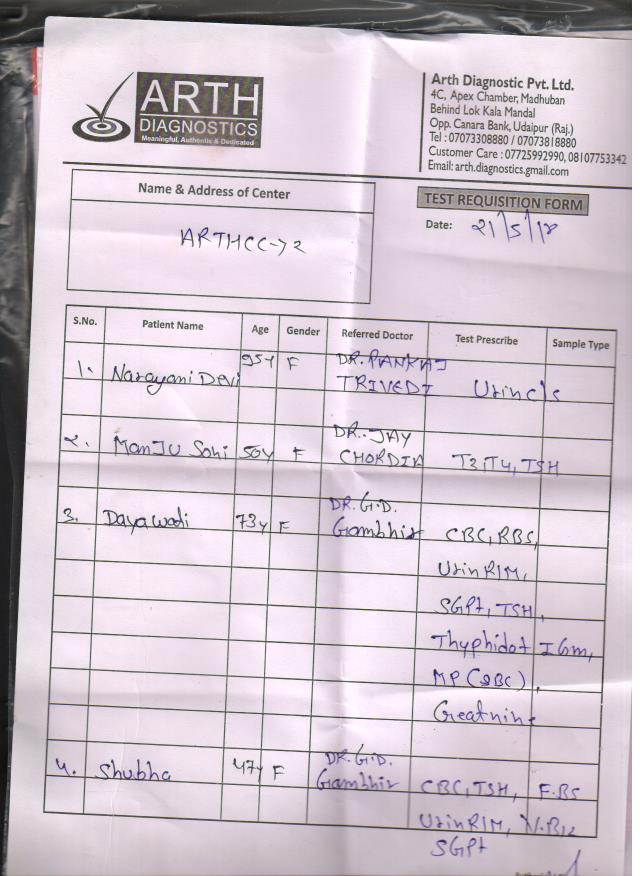 ARTH
DIAGNOSTICS
Meaningful, Authentic & Dedicated
Arth Diagnostic Pvt. Ltd.
4C, Apex Chamber, Madhuban
Behind Lok Kala Mandal
Opp. Canara Bank, Udaipur (Raj.)
Tel : 07073308880 / 07073818880
Customer Care : 07725992990, 08107753342
Email: arth.diagnostics.gmail.com
Name & Address of Center
ARTHCC-72
TEST REQUISITION FORM
Date: 21/5/18
S.No. Patient Name Age Gender Referred Doctor Test Prescribe Sample Type
1. Narayani Devi 95Y F DR. PANKAJ
TRIVEDI Urine c/s
2. Manju Soni 50Y F DR. JAY
CHORDIA T3, T4, TSH
3. Daya wadi 73Y F DR. G.D.
Gambhir CBC, RBS,
Urin R/M,
SGPt, TSH,
Thyphidot IGm,
MP (QBC),
Creatnine
4. Shubha 47Y F DR. G.D.
Gambhir CBC, TSH, F.BS
Urin R/M, V.B12
SGPt